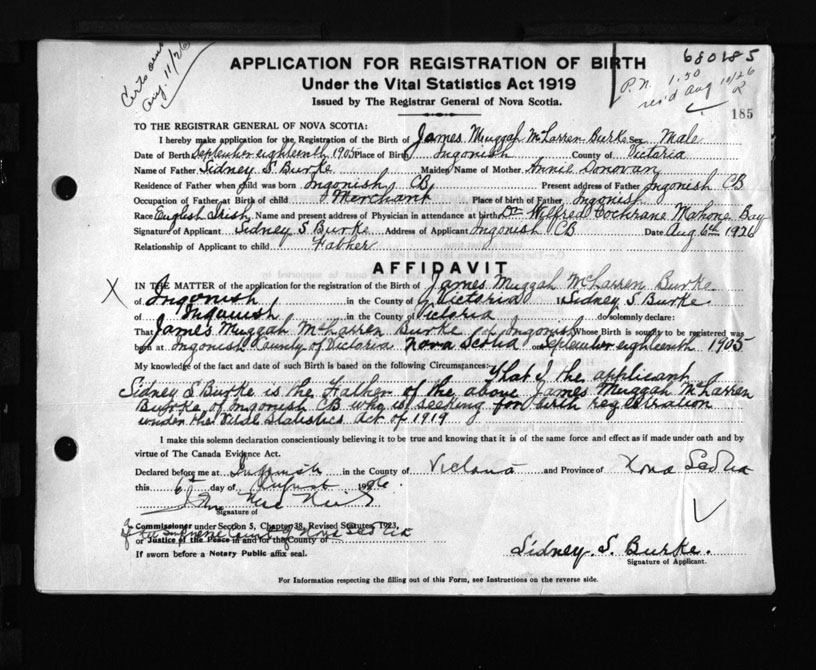 Aug. 11/26
680185
P.N. 1.50
rec'd Aug 10/26
185
APPLICATION FOR REGISTRATION OF BIRTH
Under the Vital Statistics Act 1919
Issued by The Registrar General of Nova Scotia.
TO THE REGISTRAR GENERAL OF NOVA SCOTIA:
I hereby make application for the Registration of the Birth of James Muggah McLarren Burke Sex Male
Date of Birth September eighteenth 1905 Place of Birth Ingonish County of Victoria
Name of Father Sidney S. Burke Maiden Name of Mother Annie Donovan
Residence of Father when child was born Ingonish CB Present address of Father Ingonish CB
Occupation of Father at Birth of child Merchant Place of birth of Father Ingonish
Race English Irish Name and present address of Physician in attendance at birth Dr. Wilfred Cochrane Mahone Bay
Signature of Applicant Sidney S Burke Address of Applicant Ingonish CB Date Aug 6th 1926
Relationship of Applicant to child Father
AFFIDAVIT
X IN THE MATTER of the application for the registration of the Birth of James Muggah McLarren Burke
of Ingonish in the County of Victoria I Sidney S. Burke
of Ingonish in the County of Victoria do solemnly declare:
That James Muggah McLarren Burke of Ingonish Whose Birth is sought to be registered was
born at Ingonish County of Victoria Nova Scotia on September eighteenth 1905
My knowledge of the fact and date of such Birth is based on the following Circumstances: That I the applicant
Sidney S Burke is the Father of the above James Muggah McLarren
Burke of Ingonish CB who is seeking for birth registration
under the Vital Statistics Act of 1919
I make this solemn declaration conscientiously believing it to be true and knowing that it is of the same force and effect as if made under oath and by
virtue of The Canada Evidence Act.
Declared before me at Ingonish in the County of Victoria and Province of Nova Scotia
this 6th day of August 1926
Signature of
A Commissioner under Section 5, Chapter 38, Revised Statutes, 1923,
of the Supreme Court of Nova Scotia
or Justice of the Peace in and for the County of
If sworn before a Notary Public affix seal.
Sidney. S. Burke.
Signature of Applicant.
For Information respecting the filling out of this Form, see Instructions on the reverse side.